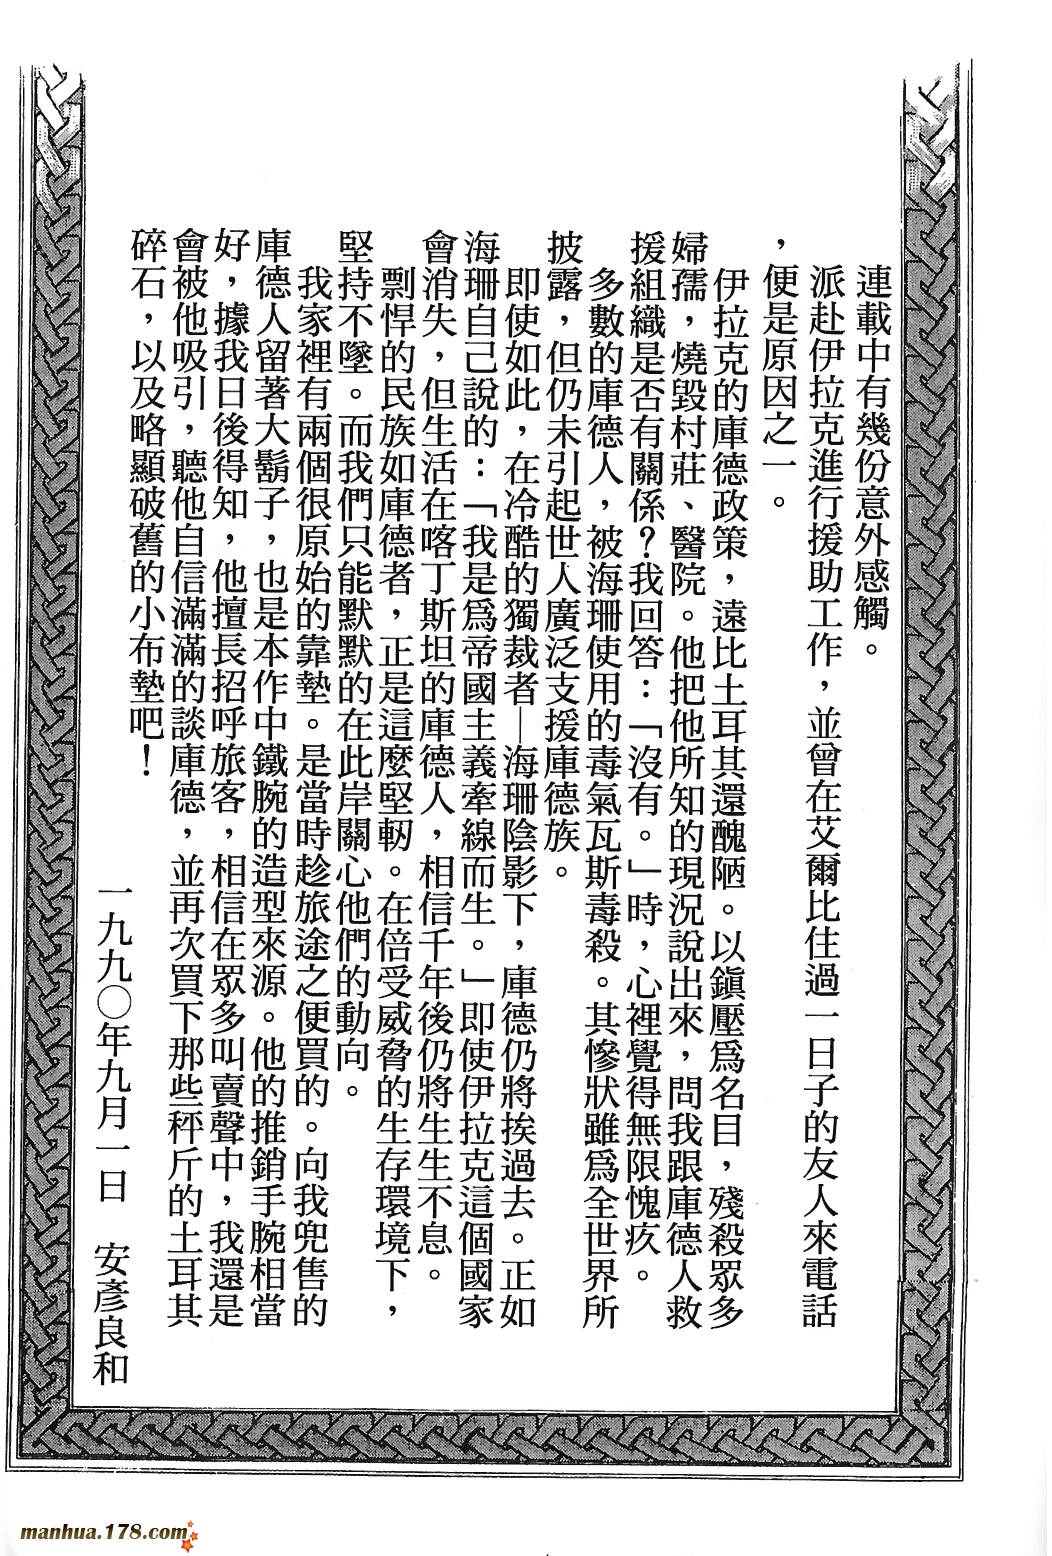 連載中有幾份意外感觸。
派赴伊拉克進行援助工作，並曾在艾爾比住過一日子的友人來電話
，便是原因之一。
伊拉克的庫德政策，遠比土耳其還醜陋。以鎭壓爲名目，殘殺眾多
婦孺，燒毀村莊、醫院。他把他所知的現況說出來，問我跟庫德人救
援組織是否有關係？我回答：「沒有。」時，心裡覺得無限愧疚。
多數的庫德人，被海珊使用的毒氣瓦斯毒殺。其慘狀雖爲全世界所
披露，但仍未引起世人廣泛支援庫德族。
即使如此，在冷酷的獨裁者—海珊陰影下，庫德仍將挨過去。正如
海珊自己說的：「我是爲帝國主義牽線而生。」即使伊拉克這個國家
會消失，但生活在喀丁斯坦的庫德人，相信千年後仍將生生不息。
剽悍的民族如庫德者，正是這麼堅軔。在倍受威脅的生存環境下，
堅持不墜。而我們只能默默的在此岸關心他們的動向。
我家裡有兩個很原始的靠墊。是當時趁旅途之便買的。向我兜售的
庫德人留著大鬍子，也是本作中鐵腕的造型來源。他的推銷手腕相當
好，據我日後得知，他擅長招呼旅客，相信在眾多叫賣聲中，我還是
會被他吸引，聽他自信滿滿的談庫德，並再次買下那些秤斤的土耳其
碎石，以及略顯破舊的小布墊吧！
一九九〇年九月一日　安彥良和
manhua.178.com